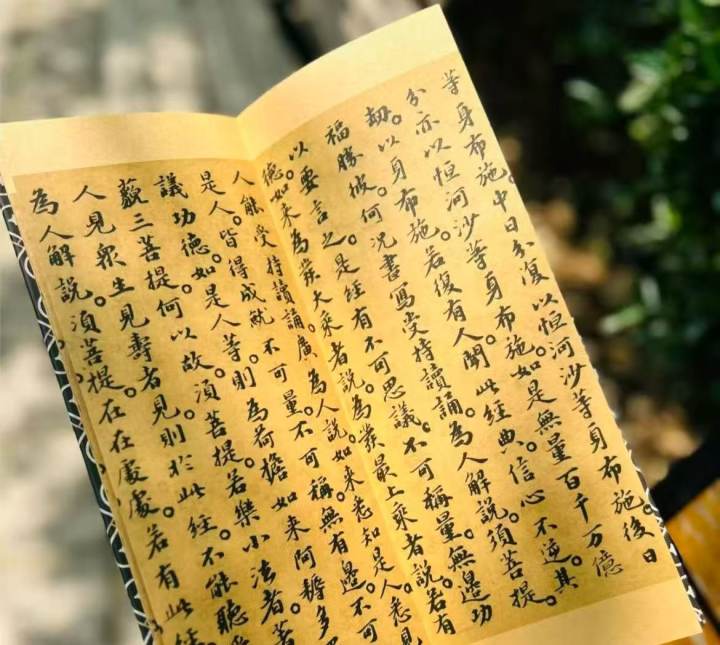 等身布施。中日分復以恒河沙等身布施後日
分亦以恒河沙等身布施。如是無量百千万億
劫。以身布施。若復有人聞此經典。信心不逆。其
福勝彼。何況書寫受持讀誦。為人解說。須菩提。
以要言之。是經有不可思議。不可稱量。無邊功
德。如來為發大乘者說。為發最上乘者說。若有
人能受持讀誦。廣為人說。如來悉知是人。悉見
是人。皆得成就。不可量。不可稱。無有邊。不可
議功德。如是人等。則為荷擔如來阿耨多
藐三菩提。何以故。須菩提。若樂小法者。著
人見衆生見壽者見。則於此經。不能聽
為人解說。須菩提。在在處處。若有此經